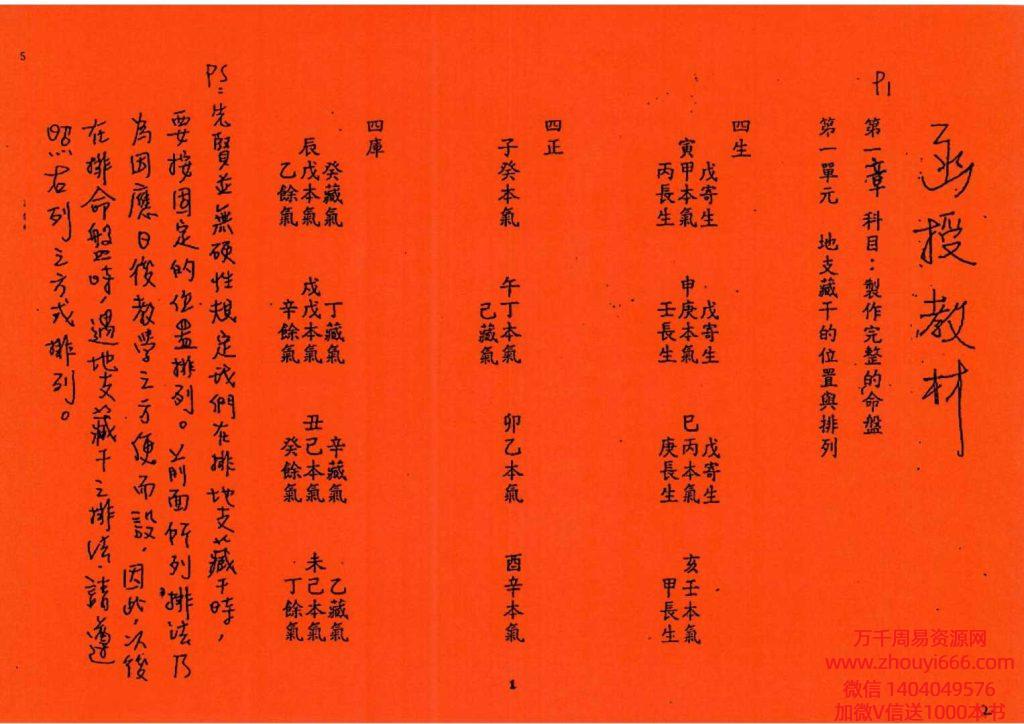 函授教材
P1
第一章 科目：製作完整的命盤
第一單元 地支藏干的位置與排列
四生
戊寄生
寅甲本氣
丙長生
戊寄生
申庚本氣
壬長生
戊寄生
巳丙本氣
庚長生
亥壬本氣
甲長生
四正
子癸本氣
午丁本氣
己藏氣
卯乙本氣
酉辛本氣
四庫
癸藏氣
辰戊本氣
乙餘氣
丁藏氣
戌戊本氣
辛餘氣
辛藏氣
丑己本氣
癸餘氣
乙藏氣
未己本氣
丁餘氣
PS：先賢並無硬性規定我們在排地支藏干時，
要按固定的位置排列。前面所列排法乃
為因應日後教學之方便而設，因此，以後
在排命盤時，遇地支藏干之排法，請遵
照右列之方式排列。
5
1
2
万千周易资源网
www.zhouyi666.com
微信 1404049576
加微V信送1000本书